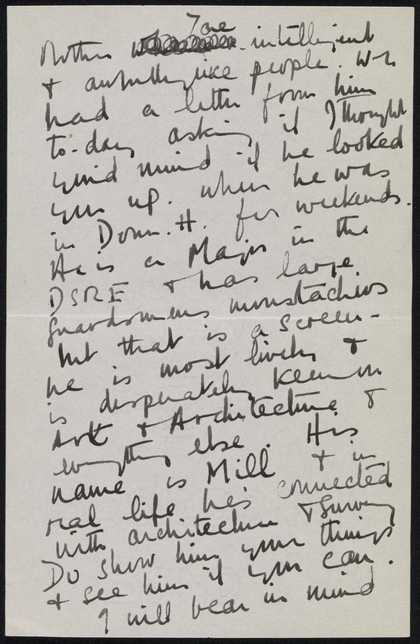 Zoe
Mother intelligent
& like people. We
had a letter from him
to-day asking if I thought
you'd mind if he looked
you up. when he was
in Down. H. for weekends.
He is a Major in the
DSRE & has large
guardsmans moustachios
but that is a screen -
he is most lively &
is desperately keen on
Art & Architecture &
everything else. His
name is Mill & in
real life he's connected
with architecture & Survey
Do show him your things
& see him if you can.
I will bear in mind